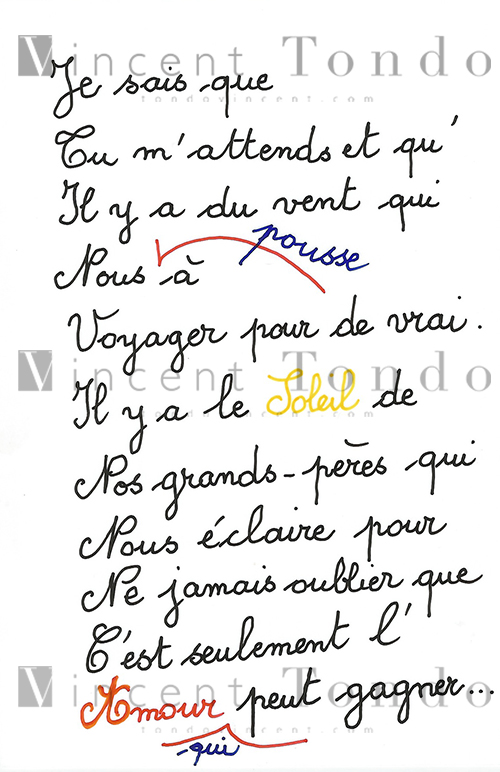 Vincent Tondo
Je sais que
tondovincent.com
Tu m'attends et qu'
Il y a du vent qui
pousse
Nous à
Voyager pour de vrai.
Vincent Tondo
Il y a le Soleil de
tondovincent.com
Nos grands-pères qui
Nous éclaire pour
Ne jamais oublier que
C'est seulement l'
Vincent Tondo
Amour peut gagner...
tondovincent.com
qui